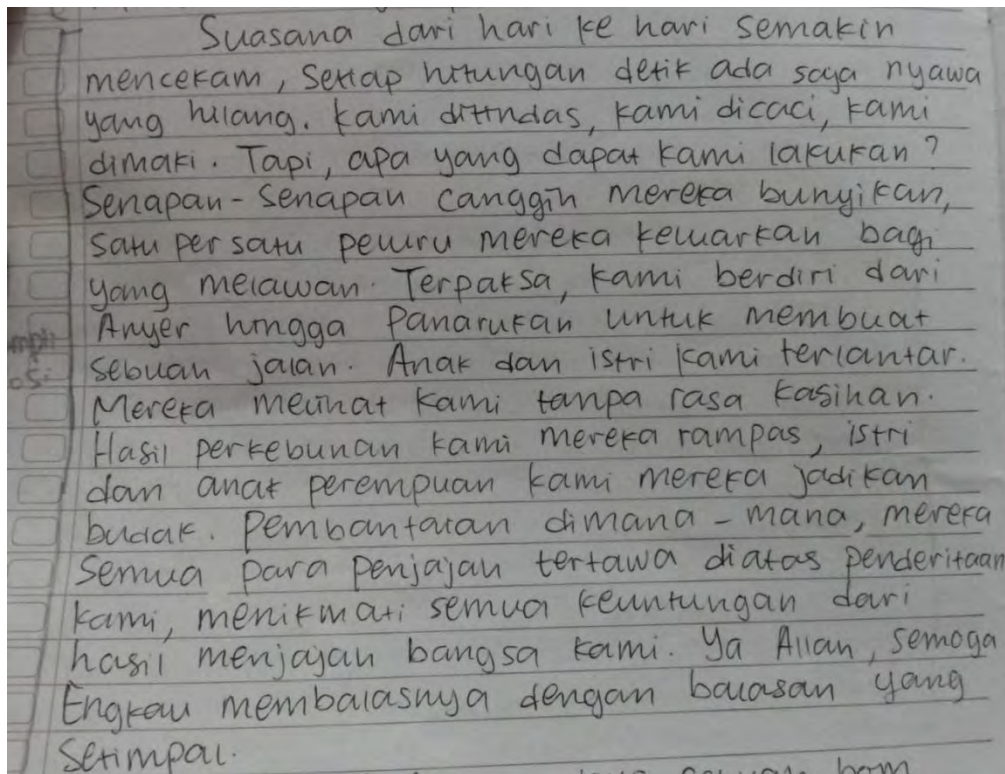 Suasana dari hari ke hari semakin
mencekam, setiap hitungan detik ada saja nyawa
yang hilang. Kami ditindas, kami dicaci, kami
dimaki. Tapi, apa yang dapat kami lakukan?
Senapan-senapan canggih mereka bunyikan,
satu per satu peluru mereka keluarkan bagi
yang melawan. Terpaksa, kami berdiri dari
Anyer hingga Panarukan untuk membuat
sebuah jalan. Anak dan istri kami terlantar.
Mereka melihat kami tanpa rasa kasihan.
Hasil perkebunan kami mereka rampas, istri
dan anak perempuan kami mereka jadikan
budak. Pembantaian dimana-mana, mereka
semua para penjajah tertawa diatas penderitaan
kami, menikmati semua keuntungan dari
hasil menjajah bangsa kami. Ya Allah, semoga
Engkau membalasnya dengan balasan yang
setimpal.